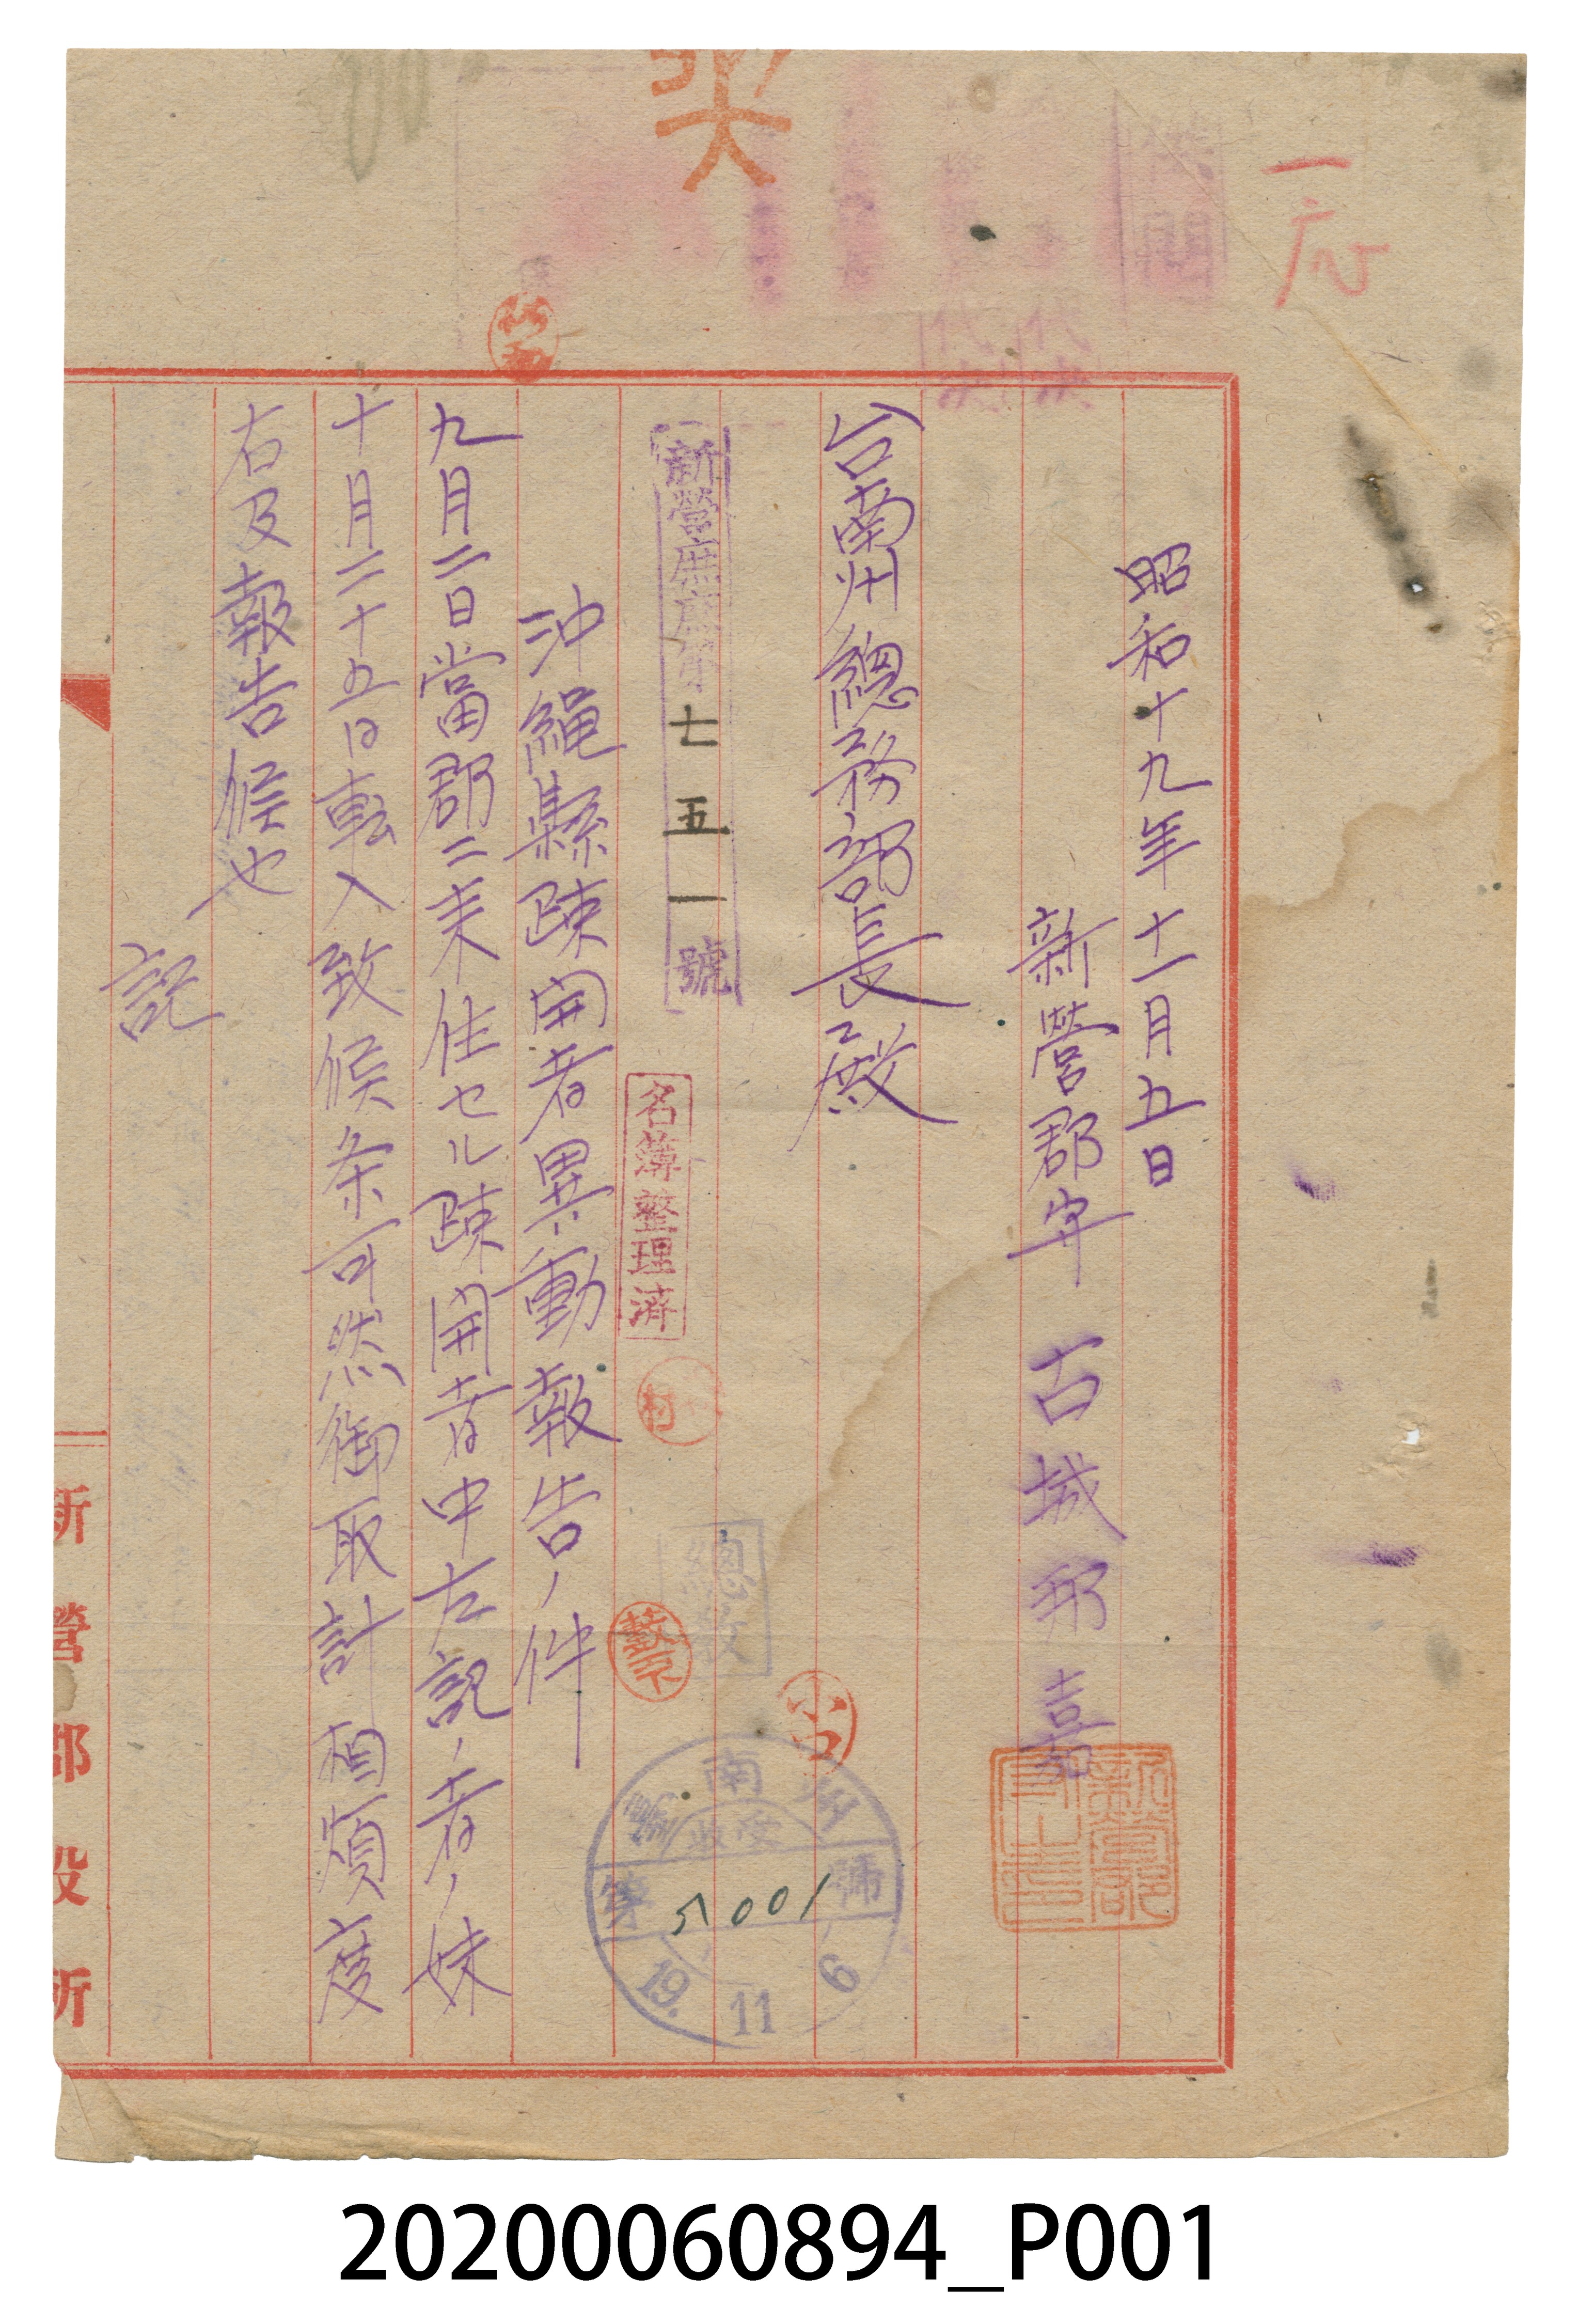 一応
昭和十九年十一月五日
新營郡守 古城邦嘉
台南州總務部長殿
新營庶
七五一號
名簿整理済
村
總務
小
台南州
收受
第5001號
19. 11 6
沖縄縣疎開者異動報告ノ件
九月二日當郡ニ来住セル疎開者中左記ノ者ノ妹
十月二十五日転入致候条可然御取計相煩度
右及報告候也
記
新營郡役所
20200060894_P001